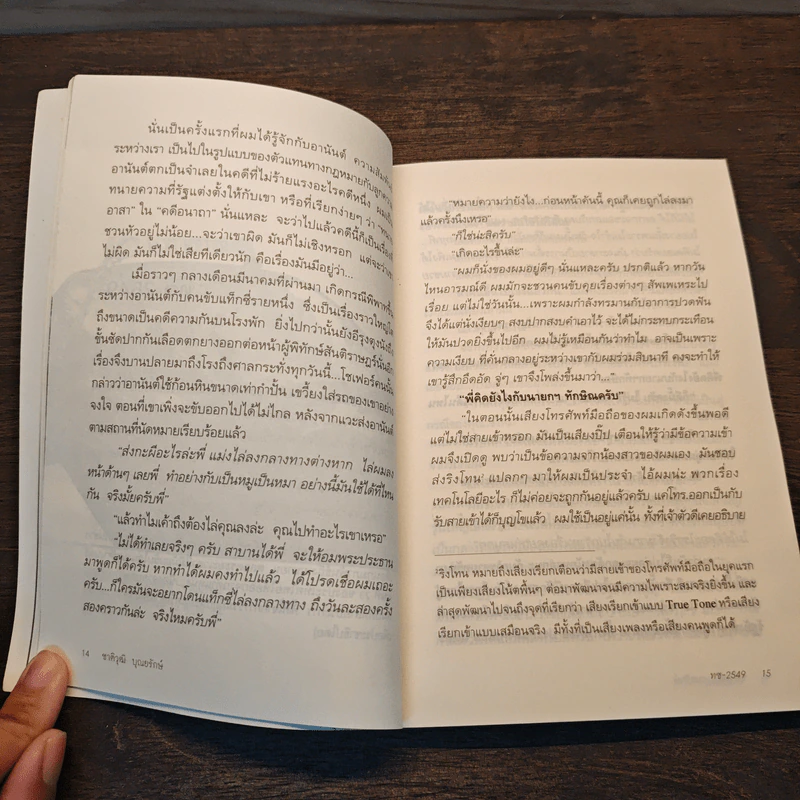 นั่นเป็นครั้งแรกที่ผมได้รู้จักกับอานันต์ ความสัมพันธ์
ระหว่างเรา เป็นไปในรูปแบบของตัวแทนทางกฎหมายกับลูกความ
อานันต์ตกเป็นจำเลยในคดีที่ไม่ร้ายแรงอะไรคดีหนึ่ง ผมเป็น
ทนายความที่รัฐแต่งตั้งให้กับเขา หรือที่เรียกง่ายๆ ว่า
อาสา" ใน "คดีอนาถา" นั่นแหละ จะว่าไปแล้วคดีนี้ก็เป็นเรื่อง
ชวนหัวอยู่ไม่น้อย...จะว่าเขาผิด มันก็ไม่เชิงหรอก แต่จะว่าเขา
ไม่ผิด มันก็ไม่ใช่เสียทีเดียวนัก คือเรื่องมันมีอยู่ว่า...
เมื่อราวๆ กลางเดือนมีนาคมที่ผ่านมา เกิดกรณีพิพาทขึ้น
ระหว่างอานันต์กับคนขับแท็กซี่รายหนึ่ง ซึ่งเป็นเรื่องราวใหญ่โต
ถึงขนาดเป็นคดีความกันบนโรงพัก ยิ่งไปกว่านั้นยังอีรุงตุงนังถึง
ขั้นซัดปากกันเลือดตกยางออกต่อหน้าผู้พิทักษ์สันติราษฎร์นั่นอีก
เรื่องจึงบานปลายมาถึงโรงถึงศาลกระทั่งทุกวันนี้...โชเฟอร์คนนั้น
กล่าวว่าอานันต์ใช้ก้อนหินขนาดเท่ากำปั้น เขวี้ยงใส่รถของเขาอย่าง
จงใจ ตอนที่เขาเพิ่งจะขับออกไปได้ไม่ไกล หลังจากแวะส่งอานันต์
ตามสถานที่นัดหมายเรียบร้อยแล้ว
"ส่งกะผีอะไรล่ะพี่ แม่งไล่ลงกลางทางต่างหาก ไล่ผมลง
หน้าด้านๆ เลยพี่ ทำอย่างกับเป็นหมูเป็นหมา อย่างนี้มันใช้ได้ที่ไหน
กัน จริงมั้ยครับพี่"
"แล้วทำไมเค้าถึงต้องไล่คุณลงล่ะ คุณไปทำอะไรเขาเหรอ"
"ไม่ได้ทำเลยจริงๆ ครับ สาบานได้พี่ จะให้อมพระประธาน
มาพูดก็ได้ครับ หากทำได้ผมคงทำไปแล้ว ได้โปรดเชื่อผมเถอะ
ครับ...ก็ใครมันจะอยากโดนแท็กซี่ไล่ลงกลางทาง ถึงวันละสองครั้ง
สองคราวกันล่ะ จริงไหมครับพี่"
14 ชาติวุฒิ บุณยรักษ์
"หมายความว่ายังไง...ก่อนหน้าคันนี้ คุณก็เคยถูกไล่ลงมา
แล้วครั้งนึงเหรอ"
"ก็ใช่น่ะสิครับ"
"เกิดอะไรขึ้นล่ะ"
"ผมก็นั่งของผมอยู่ดีๆ นั่นแหละครับ ปรกติแล้ว หากวัน
ไหนอารมณ์ดี ผมมักจะชวนคนขับคุยเรื่องต่างๆ สัพเพเหระไป
เรื่อย แต่ไม่ใช่วันนั้น...เพราะผมกำลังทรมานกับอาการปวดฟัน
จึงได้แต่นั่งเงียบๆ สงบปากสงบคำเอาไว้ จะได้ไม่กระทบกระเทือน
ให้มันปวดยิ่งขึ้นไปอีก ผมไม่รู้เหมือนกันว่าทำไม อาจเป็นเพราะ
ความเงียบ ที่คั่นกลางอยู่ระหว่างเขากับผมร่วมสิบนาที คงจะทำให้
เขารู้สึกอึดอัด จู่ๆ เขาจึงโพล่งขึ้นมาว่า..."
"พี่คิดยังไงกับนายกฯ ทักษิณครับ"
"ในตอนนั้นเสียงโทรศัพท์มือถือของผมเกิดดังขึ้นพอดี
แต่ไม่ใช่สายเข้าหรอก มันเป็นเสียงปี๊ป เตือนให้รู้ว่ามีข้อความเข้า
ผมจึงเปิดดู พบว่าเป็นข้อความจากน้องสาวของผมเอง มันชอบ
ส่งริงโทน¹ แปลกๆ มาให้ผมเป็นประจำ ไอ้ผมน่ะ พวกเรื่อง
เทคโนโลยีอะไร ก็ไม่ค่อยจะถูกกันอยู่แล้วครับ แค่โทร.ออกเป็นกับ
รับสายเข้าได้ก็บุญโขแล้ว ผมใช้เป็นอยู่แค่นั้น ทั้งที่เจ้าตัวดีเคยอธิบาย
¹ริงโทน หมายถึงเสียงเรียกเตือนว่ามีสายเข้าของโทรศัพท์มือถือในยุคแรก
เป็นเพียงเสียงโน้ตพื้นๆ ต่อมาพัฒนาจนมีความไพเราะสมจริงยิ่งขึ้น และ
ล่าสุดพัฒนาไปจนถึงจุดที่เรียกว่า เสียงเรียกเข้าแบบ True Tone หรือเสียง
เรียกเข้าแบบเสมือนจริง มีทั้งที่เป็นเสียงเพลงหรือเสียงคนพูดก็ได้
ทช-2549 15